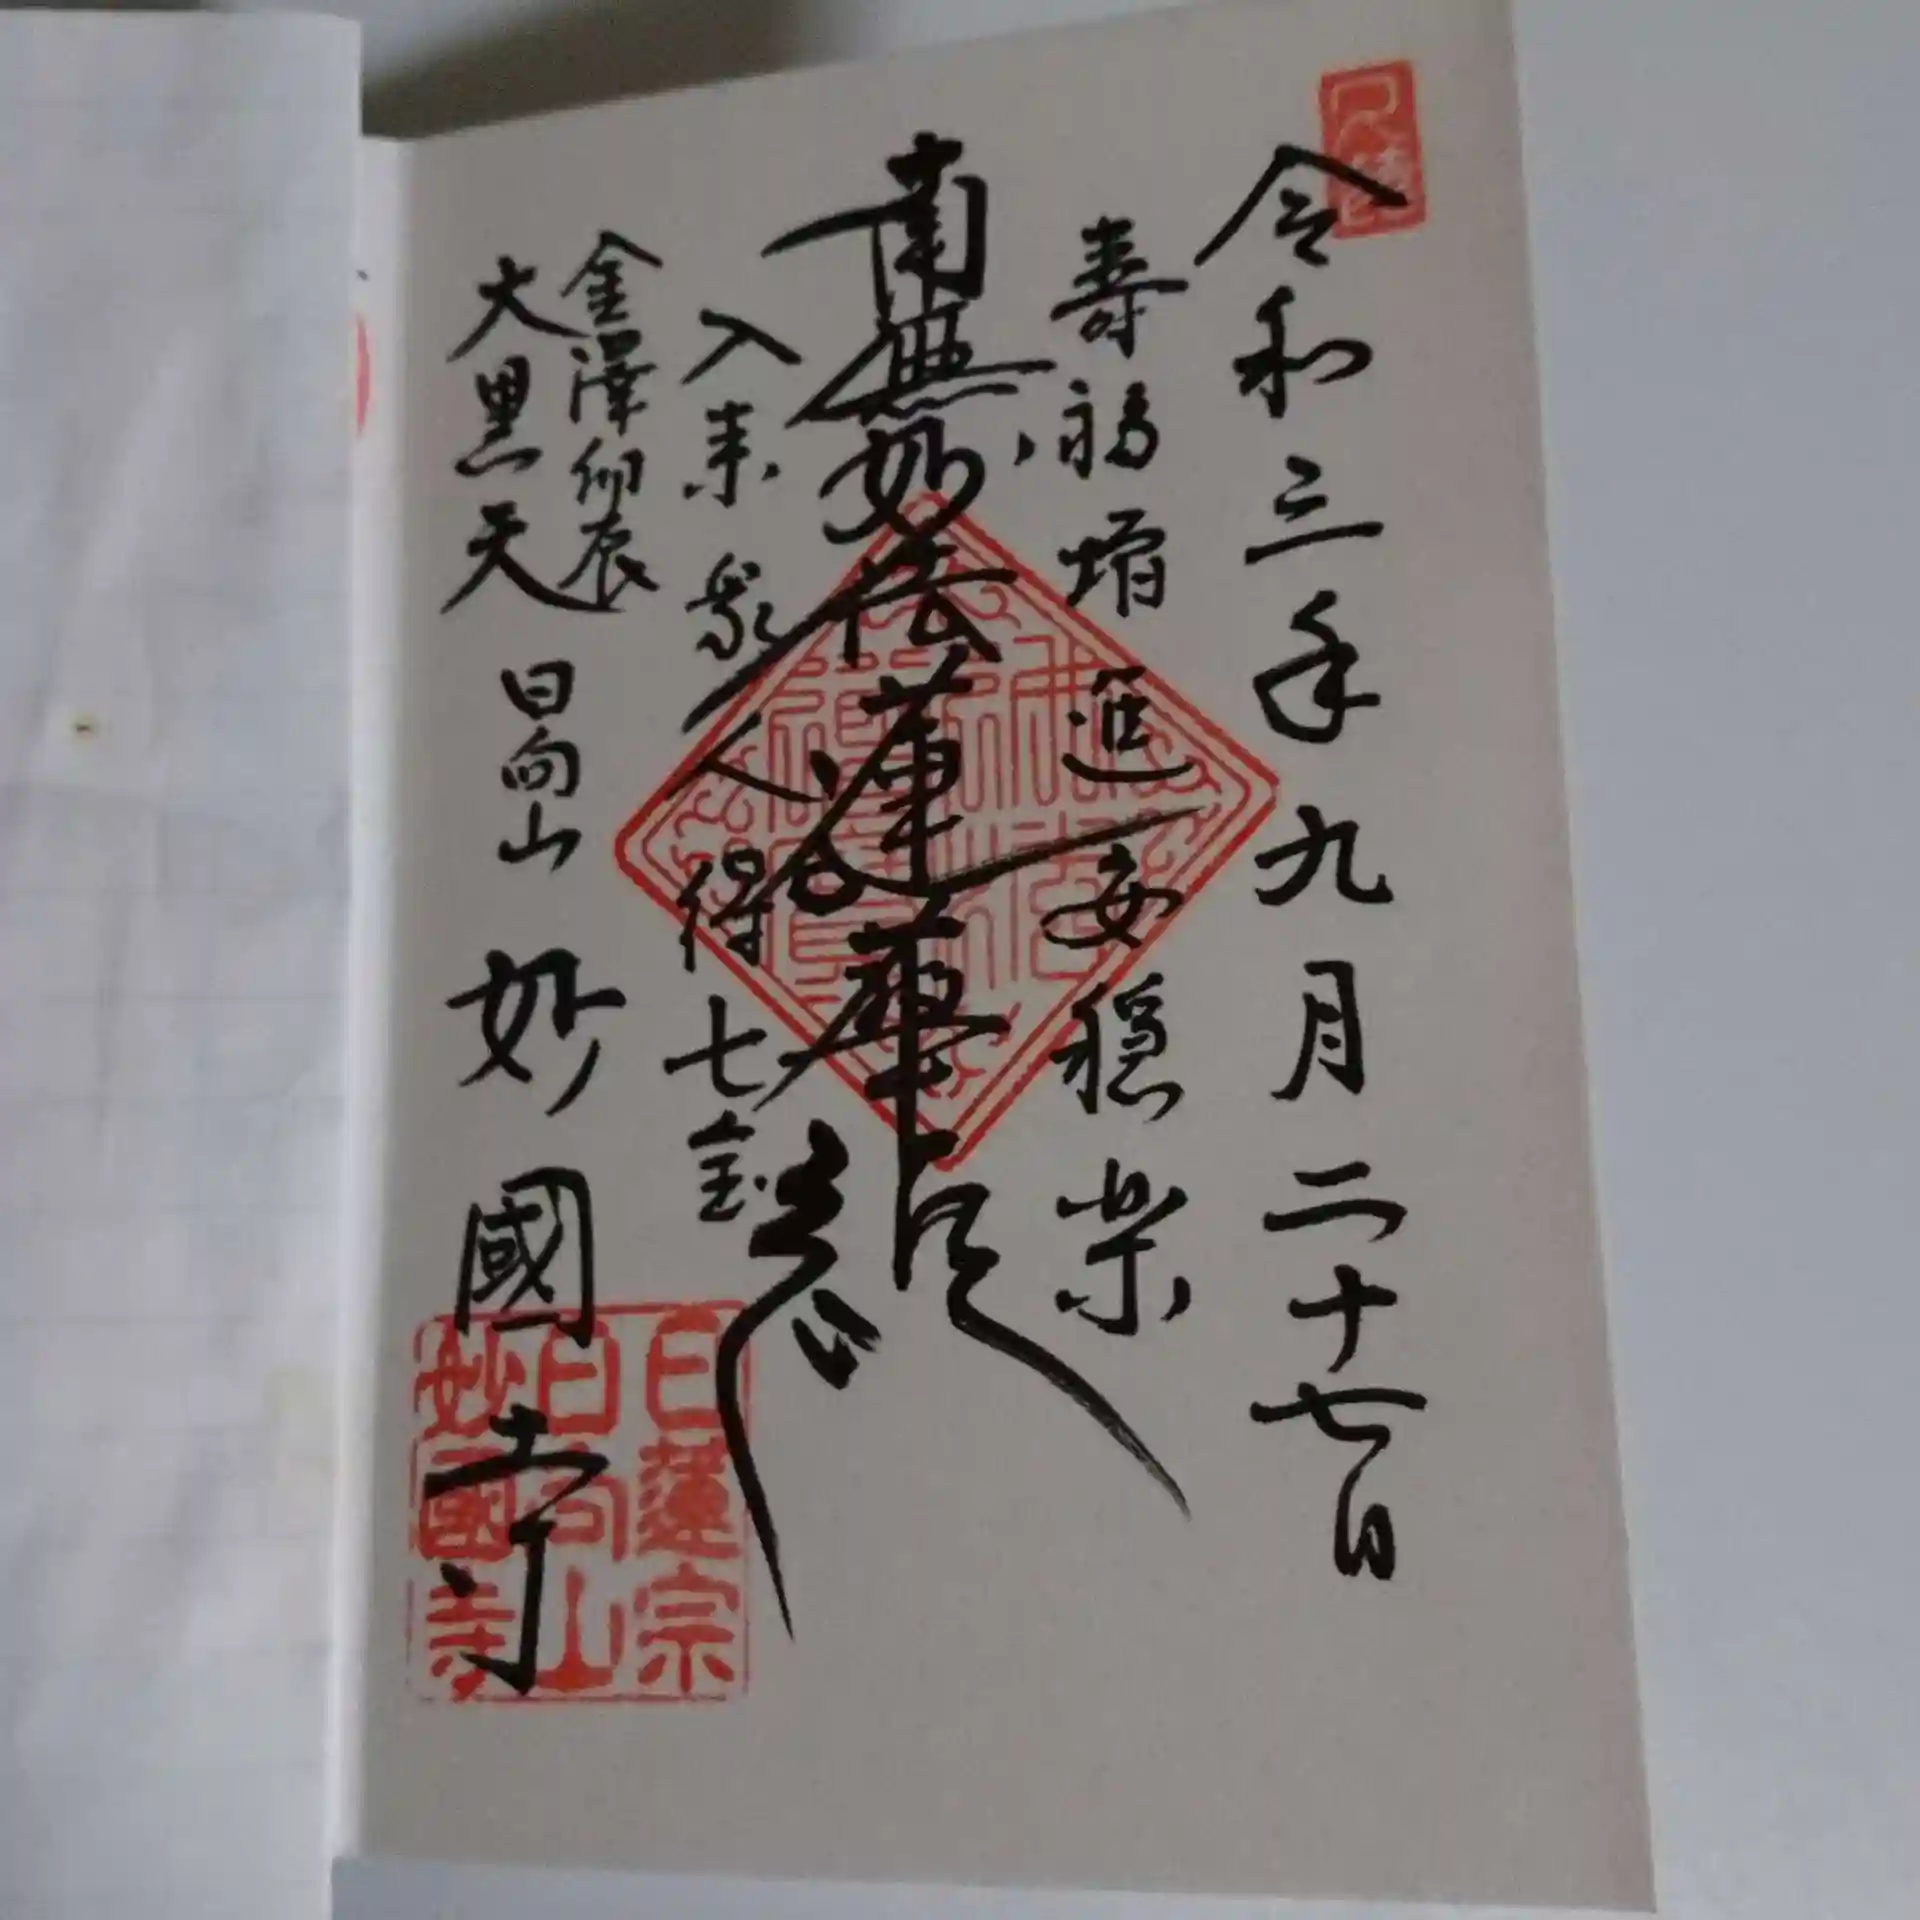 令和三年九月二十七日
寿福増進安穏楽
南無妙法蓮華経
入来衆人得七宝
金澤卯辰
大黒天 日向山 妙國寺
日蓮宗
日向山
妙國寺